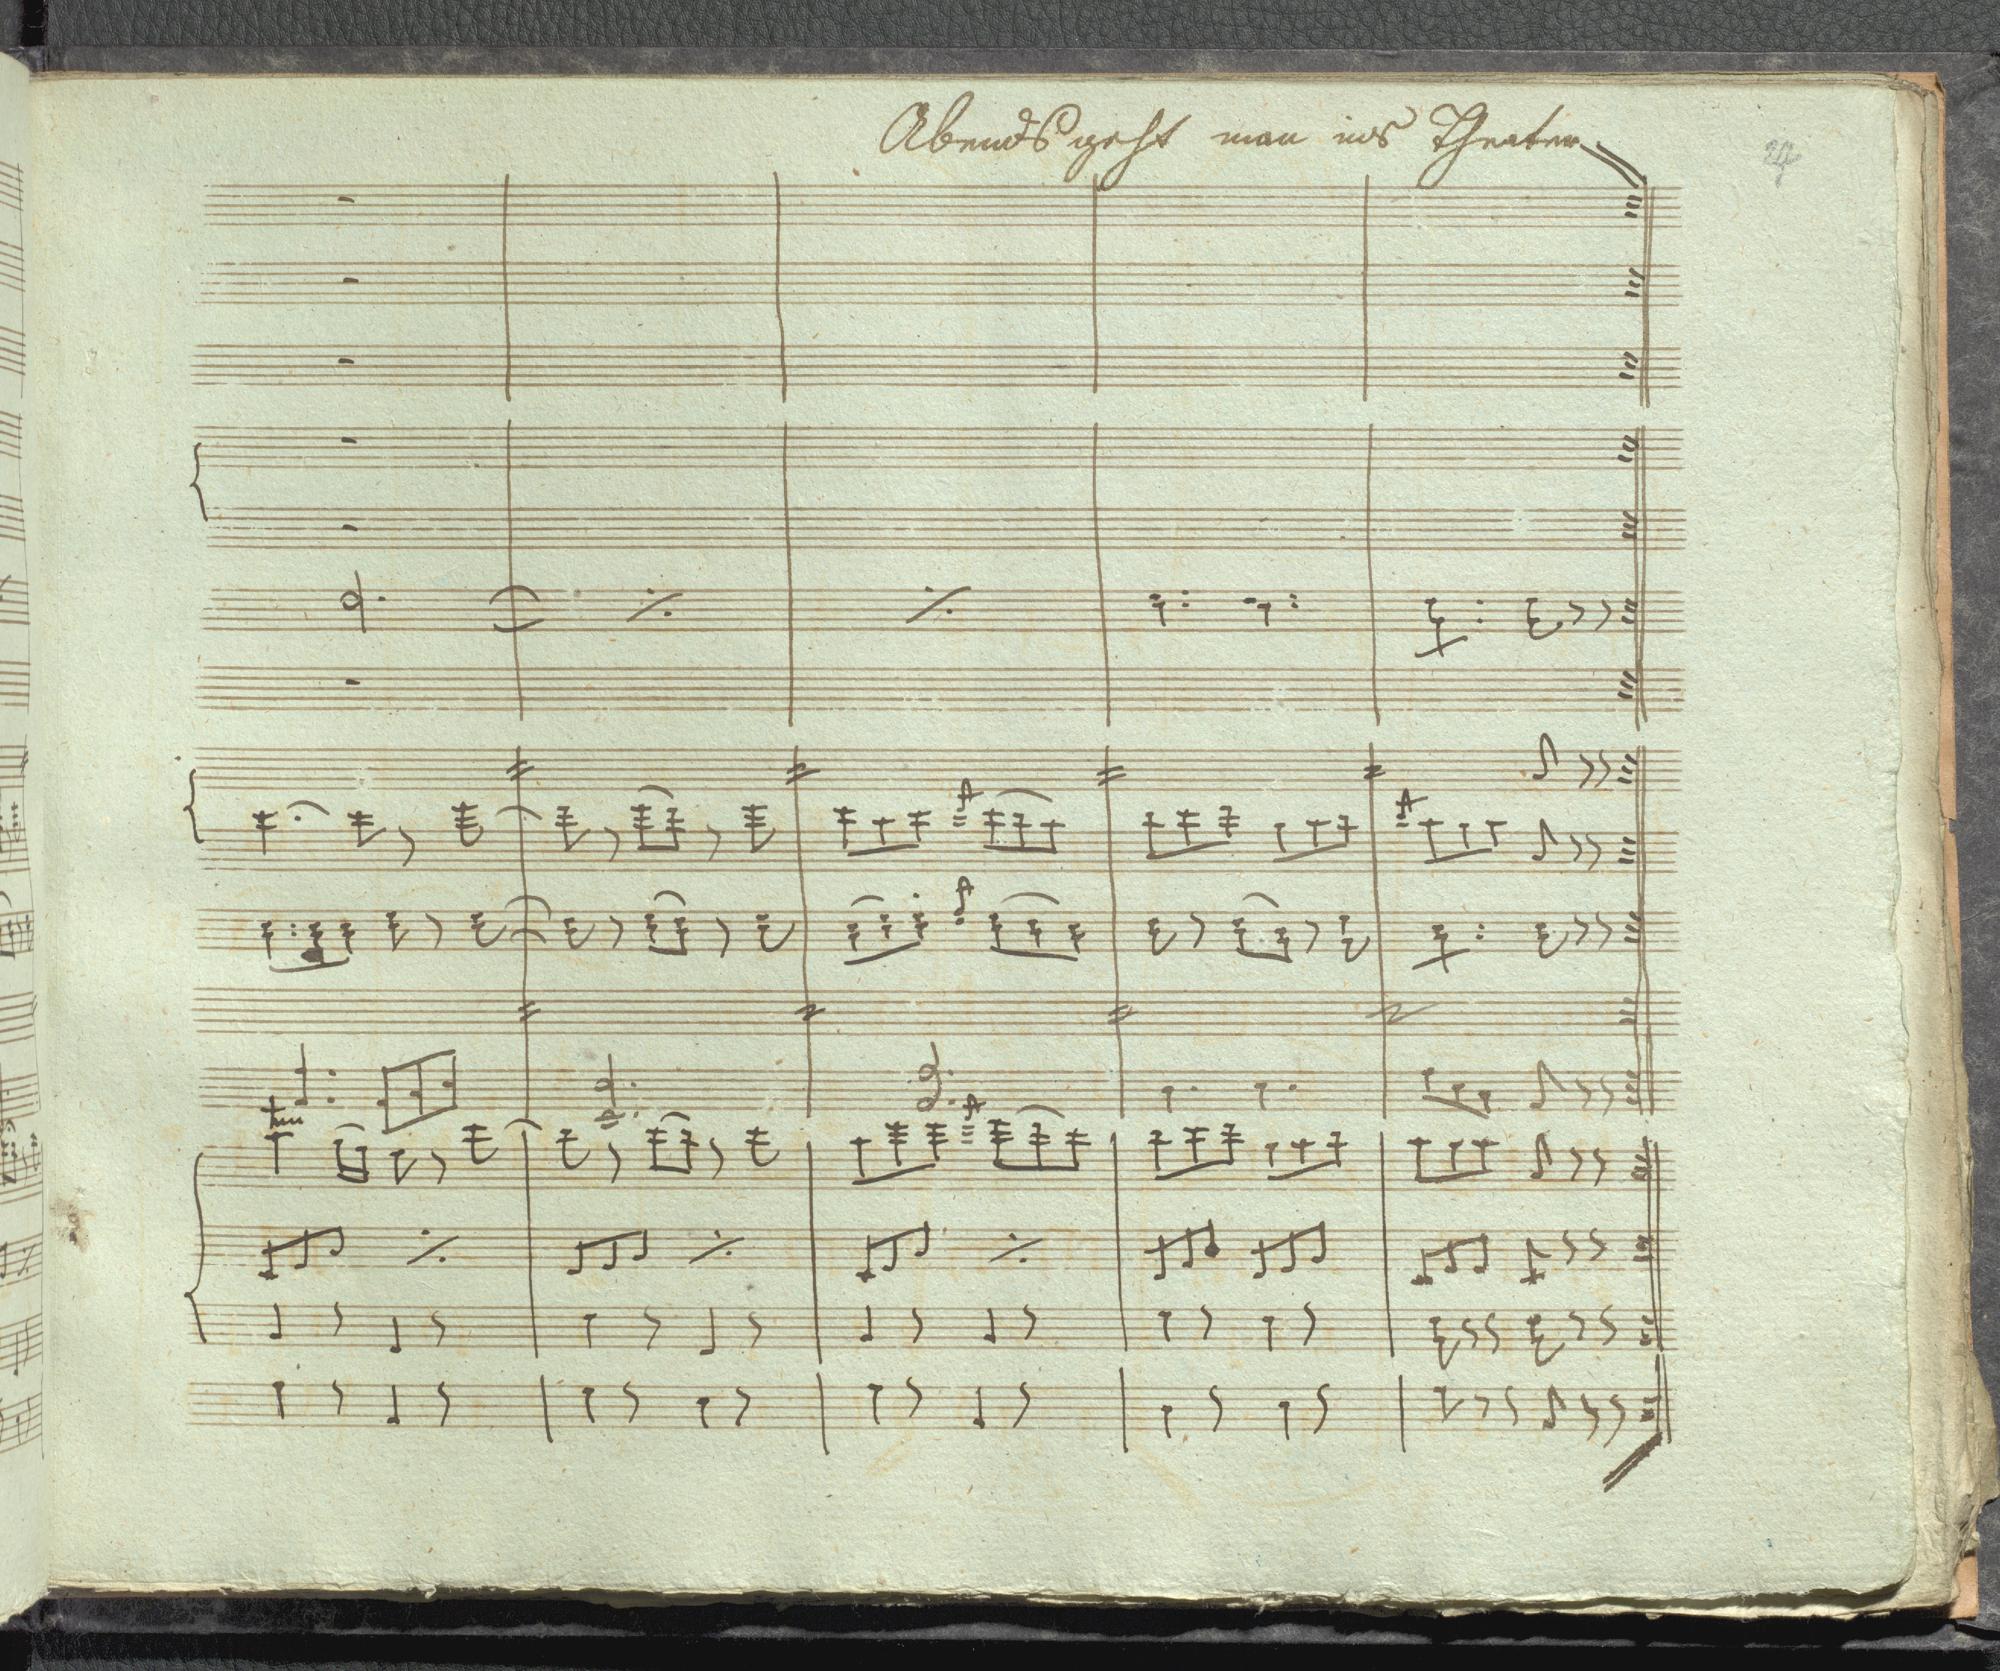 Abends geht man ins Theater
tr